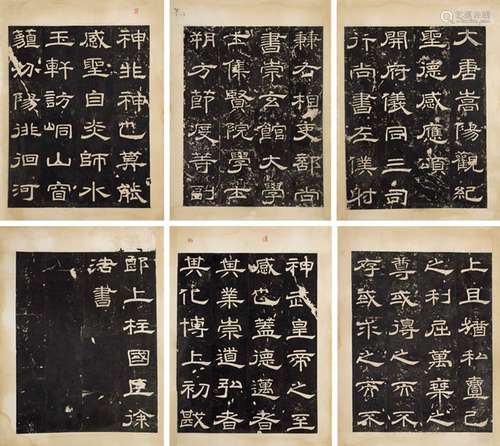 大唐嵩陽觀紀
聖德感應頌
開府儀同三司
行尚書左僕射
兼右相吏部尚
書崇玄館大學
士集賢院學士
朔方節度等副
神非神也莫能
感聖自炎師水
玉軒訪峒山窅
䫉汾陽徘徊河
上且猶私亶己
之利屈萬乘之
尊或得之而不
存或求之而不
神武皇帝之至
感也蓋德邁者
其業崇道弘者
其化博上初戢
郎上柱國臣徐
浩書